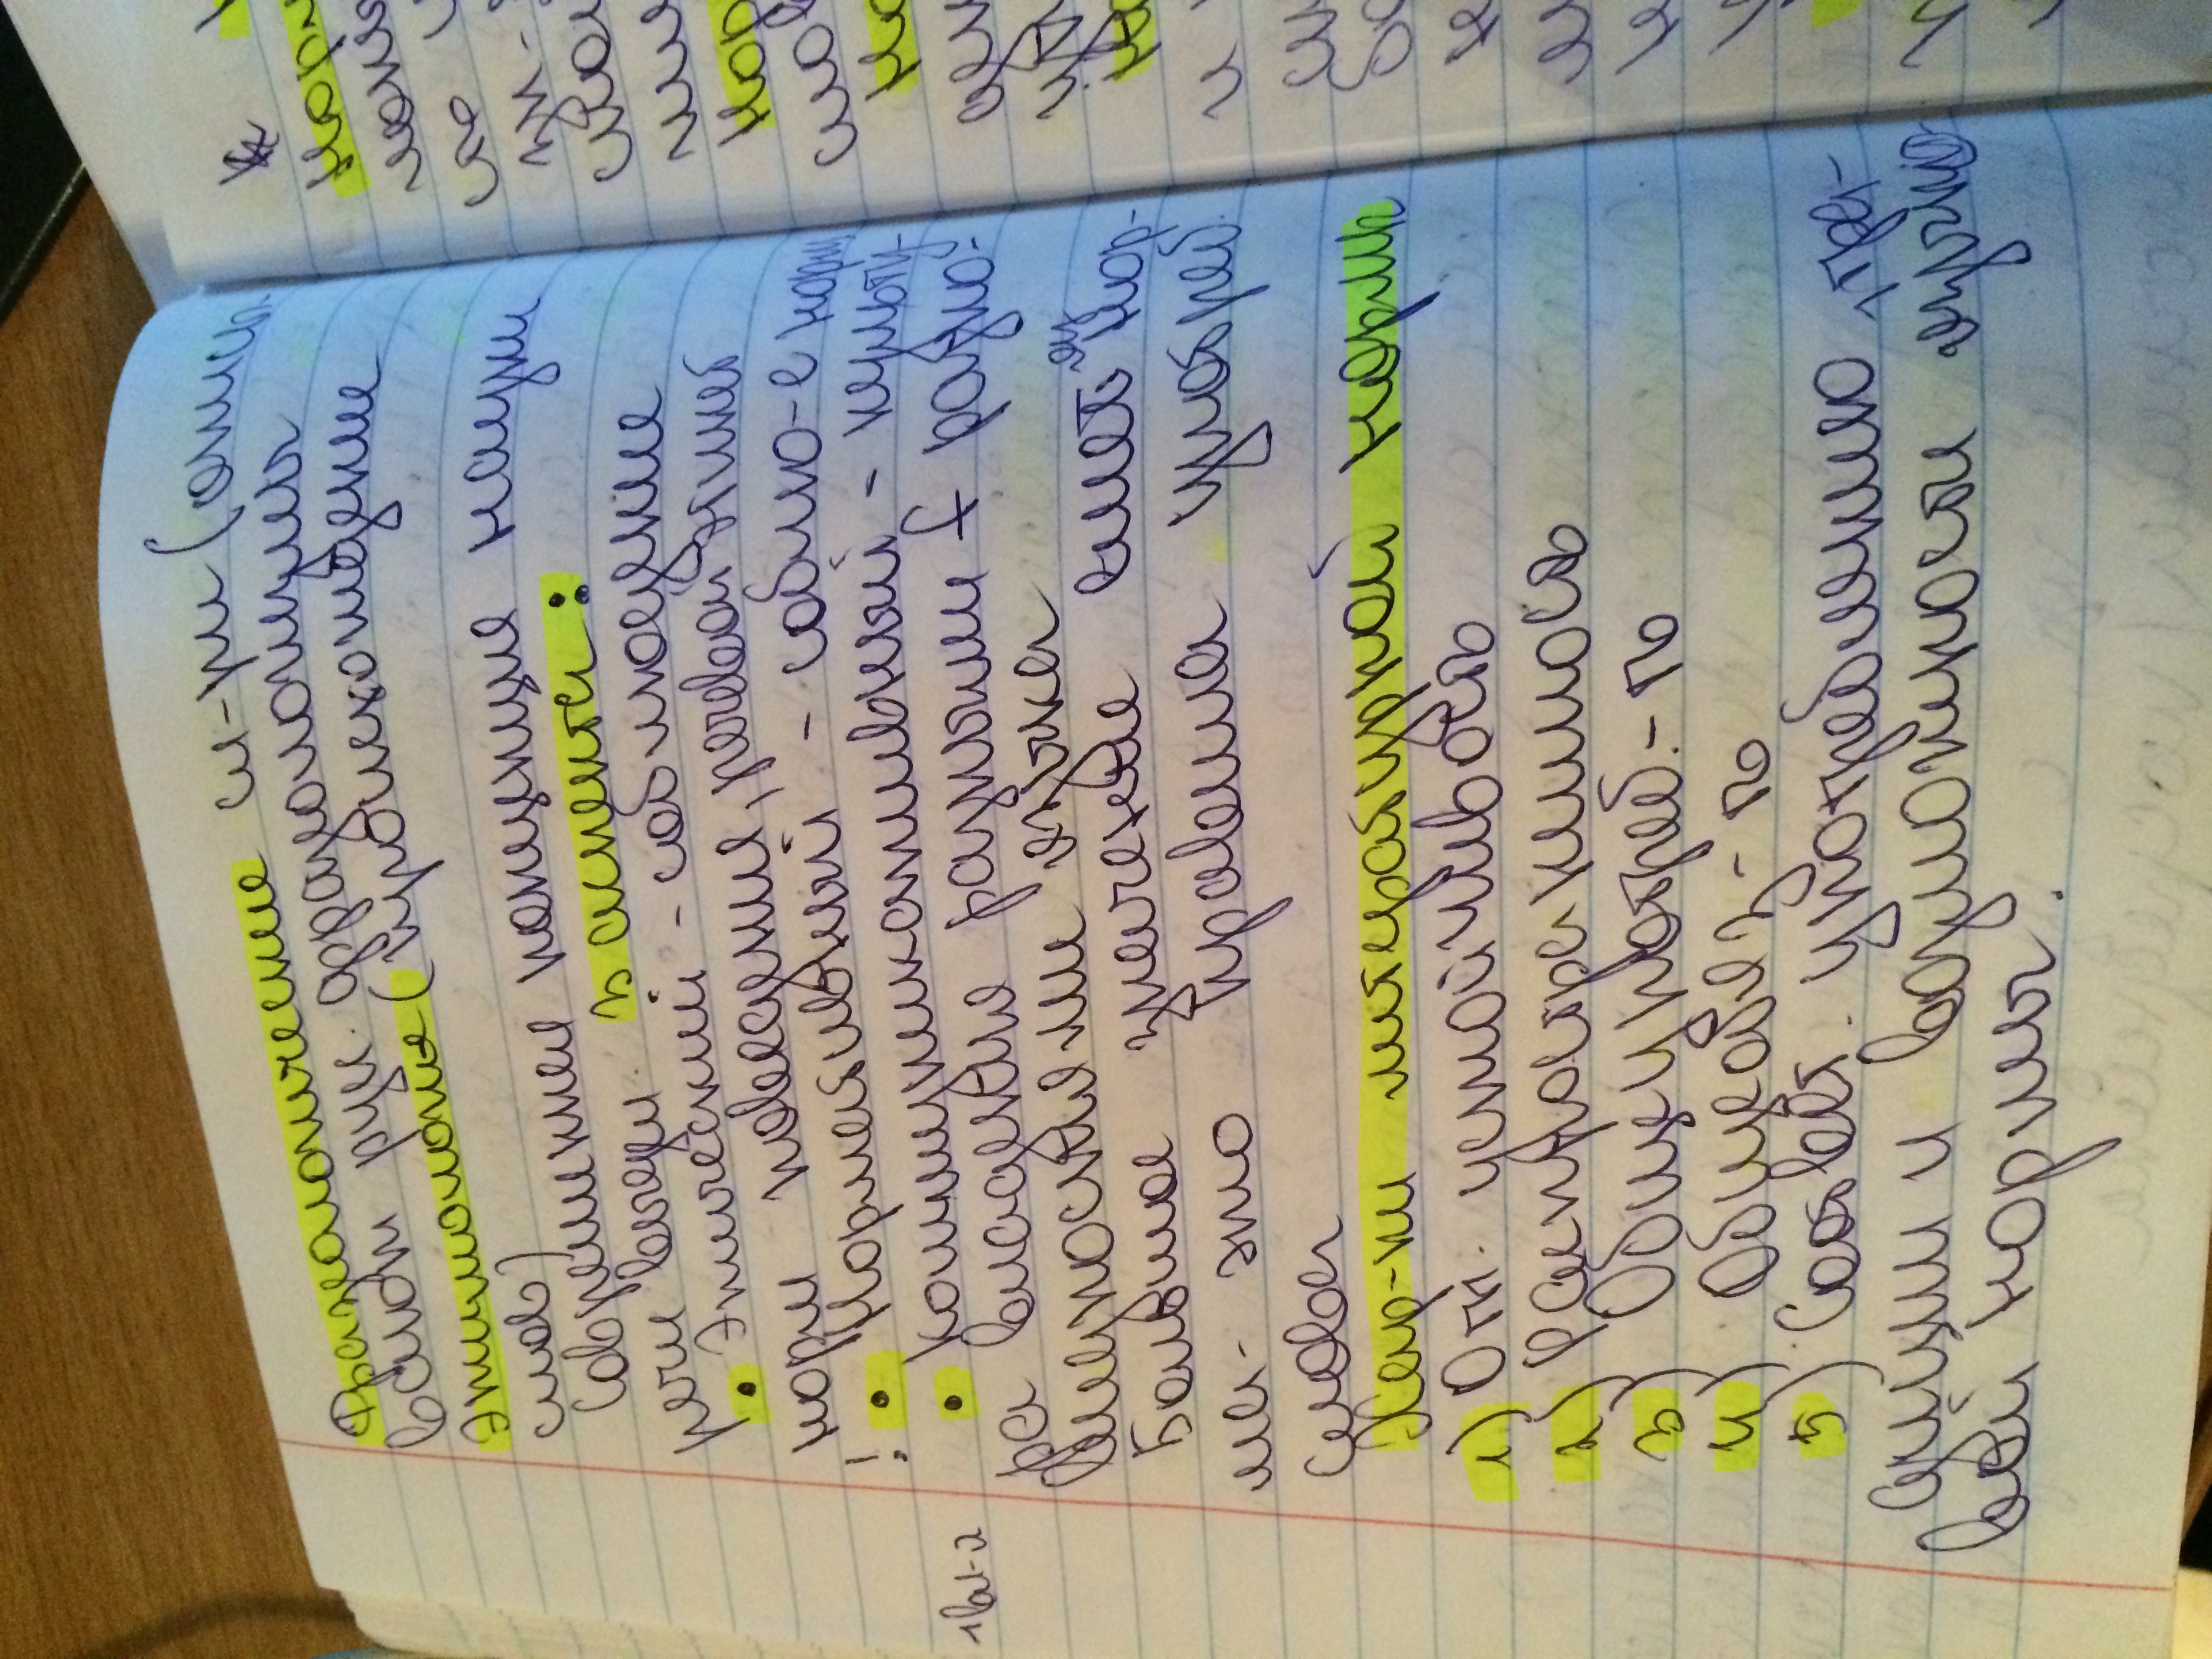 Фразеологические сл-ри (описы
вают рус. фразеологизмы
Этимология (происхождение
слов)
Современная концепция науки
речи выдел. 3 аспекта:
• Этический - соблюдение
норм поведения, речевой этикет
! • Нормативный - соблю-е норм
• Коммуникативный - культу-
ра владения разными f разно-
видностями языка
Большое значение имеет яз нор-
ма - это правила употреб.
слова
Хар-ки литературной нормы
1) Отн. устойчивость
2) Распространимость
3) Общеупотреб.-ть
4) Общеобяз-ть
5) Соответ. употреблению, тра-
диции и возможности языко
вой нормы.
Норм
сто
зн-
Нор
слов
Но
ден
и